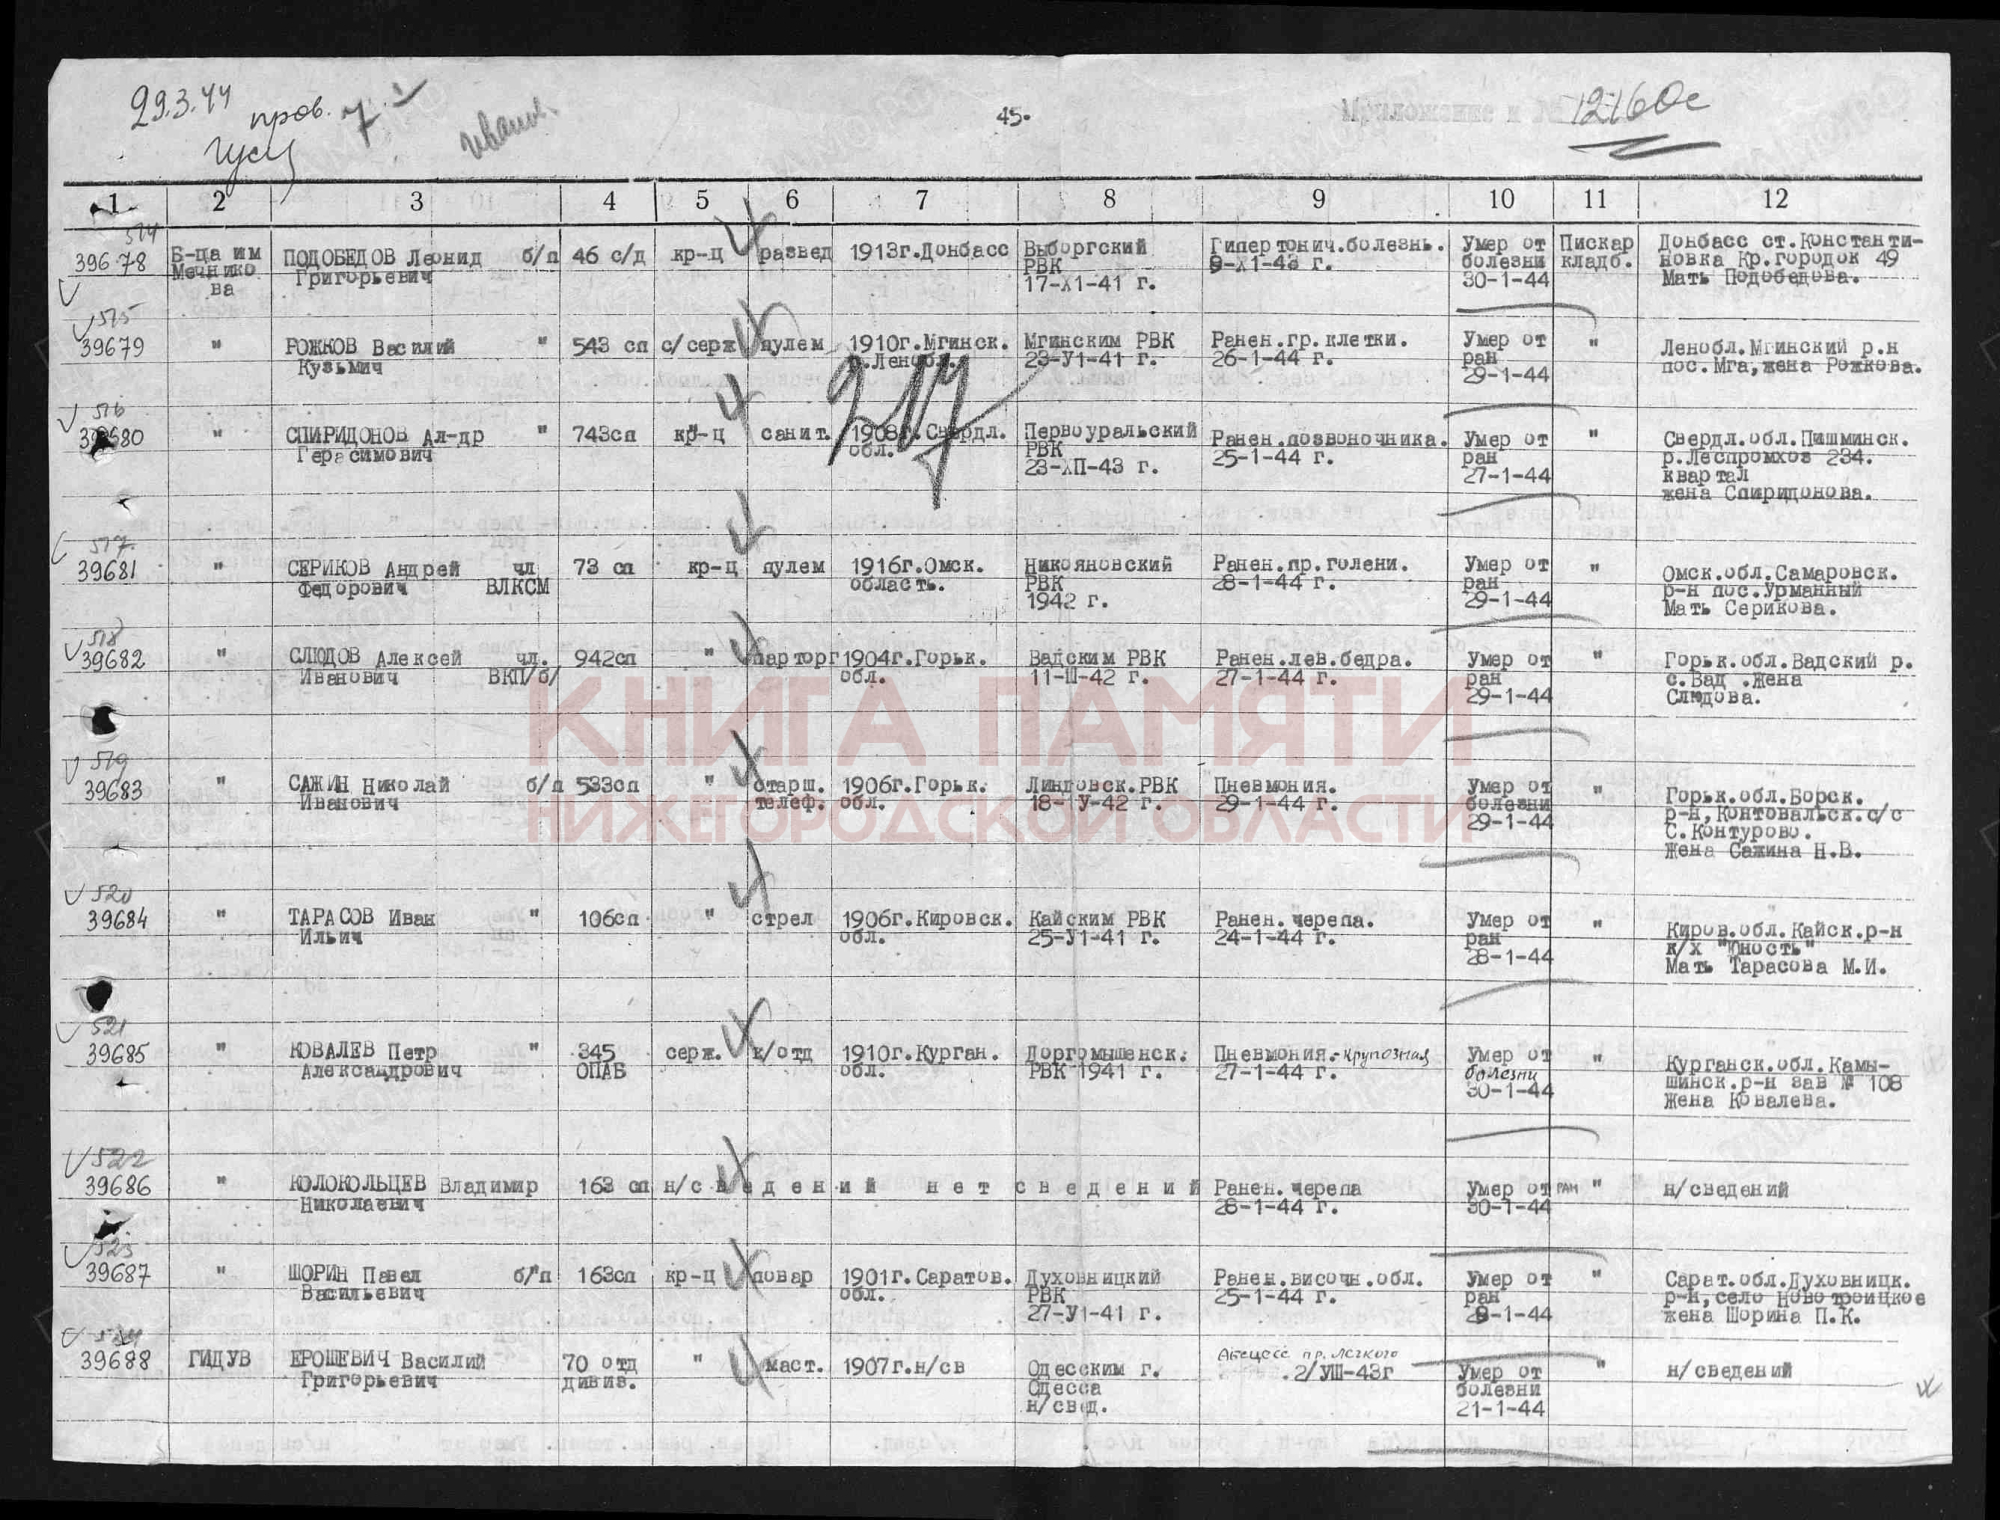 29.3.44
пров. 7
45.
Приложение к № 12160с
1 2 3 4 5 6 7 8 9 10 11 12
514
39678 Б-ца им ПОДОБЕДОВ Леонид б/п 46 с/д кр-ц развед 1913г.Донбасс Выборгский Гипертонич.болезнь. Умер от Пискар Донбасс ст.Константи-
Мечнико Григорьевич РВК 9-Х1-43 г. болезни кладб. новка Кр.городок 49
ва 17-Х1-41 г. 30-1-44 Мать Подобедова.
515
39679 " РОЖКОВ Василий " 543 сп с/серж пулем 1910г.Мгинск. Мгинским РВК Ранен.гр.клетки. Умер от " Ленобл.Мгинский р.н
Кузьмич р.Ленобл. 23-У1-41 г. 26-1-44 г. ран пос.Мга,жена Рожкова.
29-1-44
217
516
39680 " СПИРИДОНОВ Ал-др " 743сп кр-ц санит. 1908г.Свердл. Первоуральский Ранен.позвоночника. Умер от " Свердл.обл.Пишминск.
Герасимович обл. РВК 25-1-44 г. ран р.Леспромхоз 234.
23-ХП-43 г. 27-1-44 квартал
жена Спиридонова.
517
39681 " СЕРИКОВ Андрей чл 73 сп кр-ц пулем 1916г.Омск. Никояновский Ранен.пр.голени. Умер от " Омск.обл.Самаровск.
Федорович ВЛКСМ область. РВК 28-1-44 г. ран р-н пос.Урманный
1942 г. 29-1-44 Мать Серикова.
518
39682 " СЛЮДОВ Алексей чл. 942сп " парторг 1904г.Горьк. Вадским РВК Ранен.лев.бедра. Умер от " Горьк.обл.Вадский р.
Иванович ВКП/б/ обл. 11-Ш-42 г. 27-1-44 г. ран с.Вад .Жена
29-1-44 Слюдова.
КНИГА ПАМЯТИ
НИЖЕГОРОДСКОЙ ОБЛАСТИ
519
39683 " САЖИН Николай б/п 533сп " старш. 1906г.Горьк. Линдовск.РВК Пневмония. Умер от " Горьк.обл.Борск.
Иванович телеф. обл. 18-1У-42 г. 29-1-44 г. болезни р-н,Контовальск.с/с
29-1-44 С.Контурово.
Жена Сажина Н.В.
520
39684 " ТАРАСОВ Иван " 106сп " стрел 1906г.Кировск. Кайским РВК Ранен.черепа. Умер от " Киров.обл.Кайск.р-н
Ильич обл. 25-У1-41 г. 24-1-44 г. ран к/х "Юность"
28-1-44 Мать Тарасова М.И.
521
39685 " КОВАЛЕВ Петр " 345 серж. к/отд 1910г.Курган. Доргомышенск. Пневмония.-крупозная Умер от " Курганск.обл.Камы-
Александрович ОПАБ обл. РВК 1941 г. 27-1-44 г. болезни шинск.р-н зав № 108
30-1-44 Жена Ковалева.
522
39686 " КОЛОКОЛЬЦЕВ Владимир 163 сп н/сведений нет сведений Ранен.черепа Умер от ран " н/сведений
Николаевич 28-1-44 г. 30-1-44
523
39687 " ШОРИН Павел б/п 163сп кр-ц повар 1901г.Саратов. Духовницкий Ранен.височн.обл. Умер от " Сарат.обл.Духовницк.
Васильевич обл. РВК 25-1-44 г. ран р-н,село Новотроицкое
27-У1-41 г. 29-1-44 жена Шорина П.К.
524
39688 ГИДУВ ЕРОШЕВИЧ Василий 70 отд " маст. 1907г.н/св Одесским г. Абсцесс пр.легкого Умер от " н/сведений
Григорьевич дивиз. Одесса .2/УШ-43г болезни
н/свед. 21-1-44